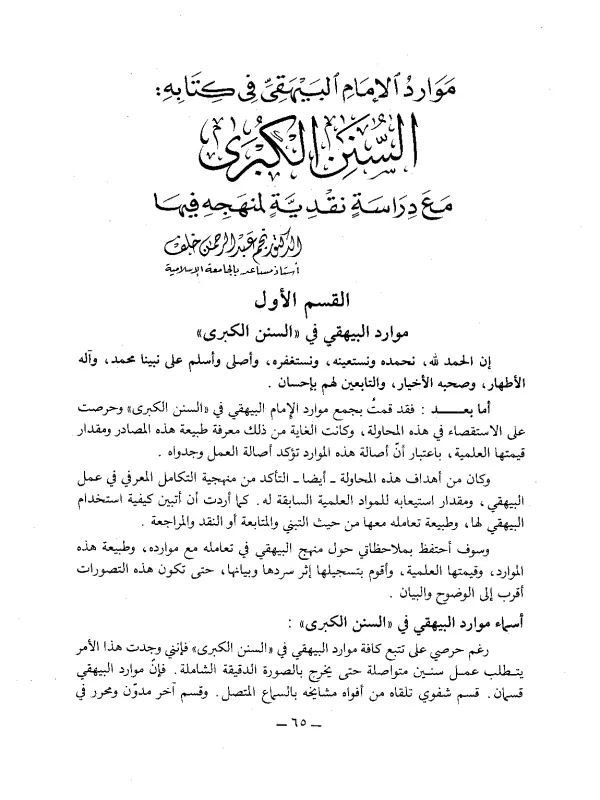 مَوَارِدُ الإِمَامِ البَيْهَقِيِّ فِي كِتَابِهِ:
السُّنَنُ الكُبْرَى
مَعَ دِرَاسَةٍ نَقْدِيَّةٍ لِمَنْهَجِهِ فِيهَا
الدكتور نجم عبد الرحمن خلف
أستاذ مساعد بالجامعة الإسلامية
القسم الأول
موارد البيهقي في «السنن الكبرى»
إن الحمد لله، نحمده ونستعينه، ونستغفره، وأصلى وأسلم على نبينا محمد، وآله
الأطهار، وصحبه الأخيار، والتابعين لهم بإحسان .
أما بعـــد : فقد قمتُ بجمع موارد الإمام البيهقي في «السنن الكبرى» وحرصت
على الاستقصاء في هذه المحاولة، وكانت الغاية من ذلك معرفة طبيعة هذه المصادر ومقدار
قيمتها العلمية، باعتبار أنّ أصالة هذه الموارد تؤكد أصالة العمل وجدواه .
وكان من أهداف هذه المحاولة ـ أيضا ـ التأكد من منهجية التكامل المعرفي في عمل
البيهقي، ومقدار استيعابه للمواد العلمية السابقة له. كما أردت أن أتبين كيفية استخدام
البيهقي لها، وطبيعة تعامله معها من حيث التبني والمتابعة أو النقد والمراجعة .
وسوف أحتفظ بملاحظاتي حول منهج البيهقي في تعامله مع موارده، وطبيعة هذه
الموارد، وقيمتها العلمية، وأقوم بتسجيلها إثر سردها وبيانها، حتى تكون هذه التصورات
أقرب إلى الوضوح والبيان .
أسماء موارد البيهقي في «السنن الكبرى» :
رغم حرصي على تتبع كافة موارد البيهقي في «السنن الكبرى» فإنني وجدت هذا الأمر
يتطلب عمـل سنـين متواصلة حتى يخرج بالصورة الدقيقة الشاملة. فإنّ موارد البيهقي
قسمان. قسم شفوي تلقاه من أفواه مشايخه بالسماع المتصل. وقسم آخر مدوّن ومحرر في
ـ ٦٥ ـ